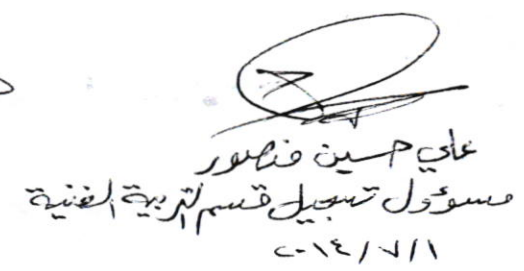 علي حسين منصور
مسؤول تسجيل قسم التربية الفنية
٢٠١٤/٧/١